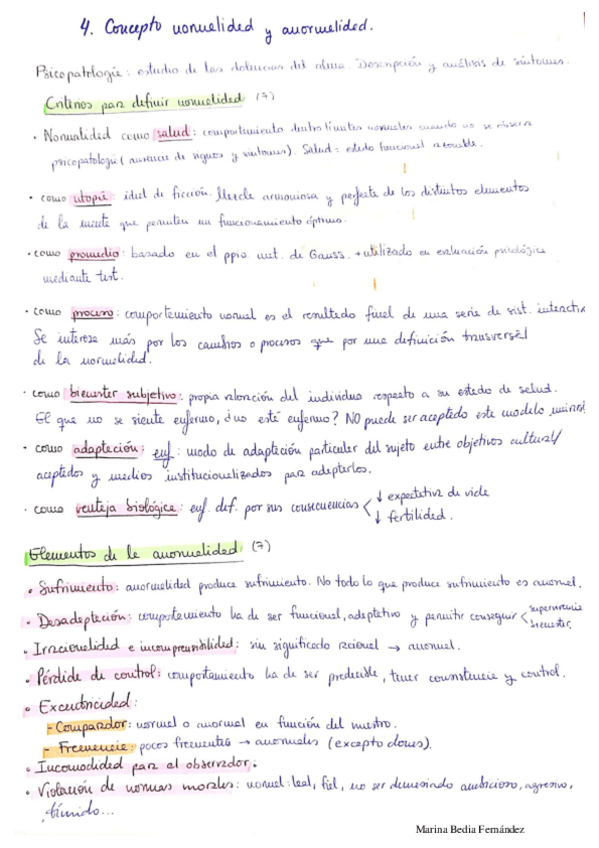 4. Concepto normalidad y anormalidad.
Psicopatología: estudio de las dolencias del alma. Descripción y análisis de síntomas.
Criterios para definir normalidad (7)
· Normalidad como salud: comportamiento dentro límites normales cuando no se observa
psicopatología (ausencia de signos y síntomas). Salud: estado funcional razonable.
· como utopía: ideal de ficción. Mezcla armoniosa y perfecta de los distintos elementos
de la mente que permiten un funcionamiento óptimo.
· como promedio: basado en el ppio. mat. de Gauss. + utilizado en evaluación psicológica
mediante test.
· como proceso: comportamiento normal es el resultado final de una serie de sist. interactiv
Se interesa más por los cambios o procesos que por una definición transversal
de la normalidad.
· como bienestar subjetivo: propia valoración del individuo respecto a su estado de salud.
El que no se siente enfermo, ¿no está enfermo? NO puede ser aceptado este modelo
· como adaptación: enf: modo de adaptación particular del sujeto entre objetivos cultural/
aceptados y medios institucionalizados para adoptarlos.
· como ventaja biológica: enf. def. por sus consecuencias < ↓ expectativa de vida
↓ fertilidad.
Elementos de la anormalidad (7)
· Sufrimiento: anormalidad produce sufrimiento. No todo lo que produce sufrimiento es anormal.
· Desadaptación: comportamiento ha de ser funcional, adaptativo y permitir conseguir < supervivencia
bienestar.
· Irracionalidad e incomprensibilidad: sin significado racional → anormal.
· Pérdida de control: comportamiento ha de ser predecible, tener consistencia y control.
· Excentricidad:
- Comparador: normal o anormal en función del nuestro.
- Frecuencia: pocos frecuentes → anormales (excepto dones).
· Incomodidad para el observador.
· Violación de normas morales: normal: leal, fiel, no ser demasiado ambicioso, agresivo,
tímido...
Marina Bedia Fernández